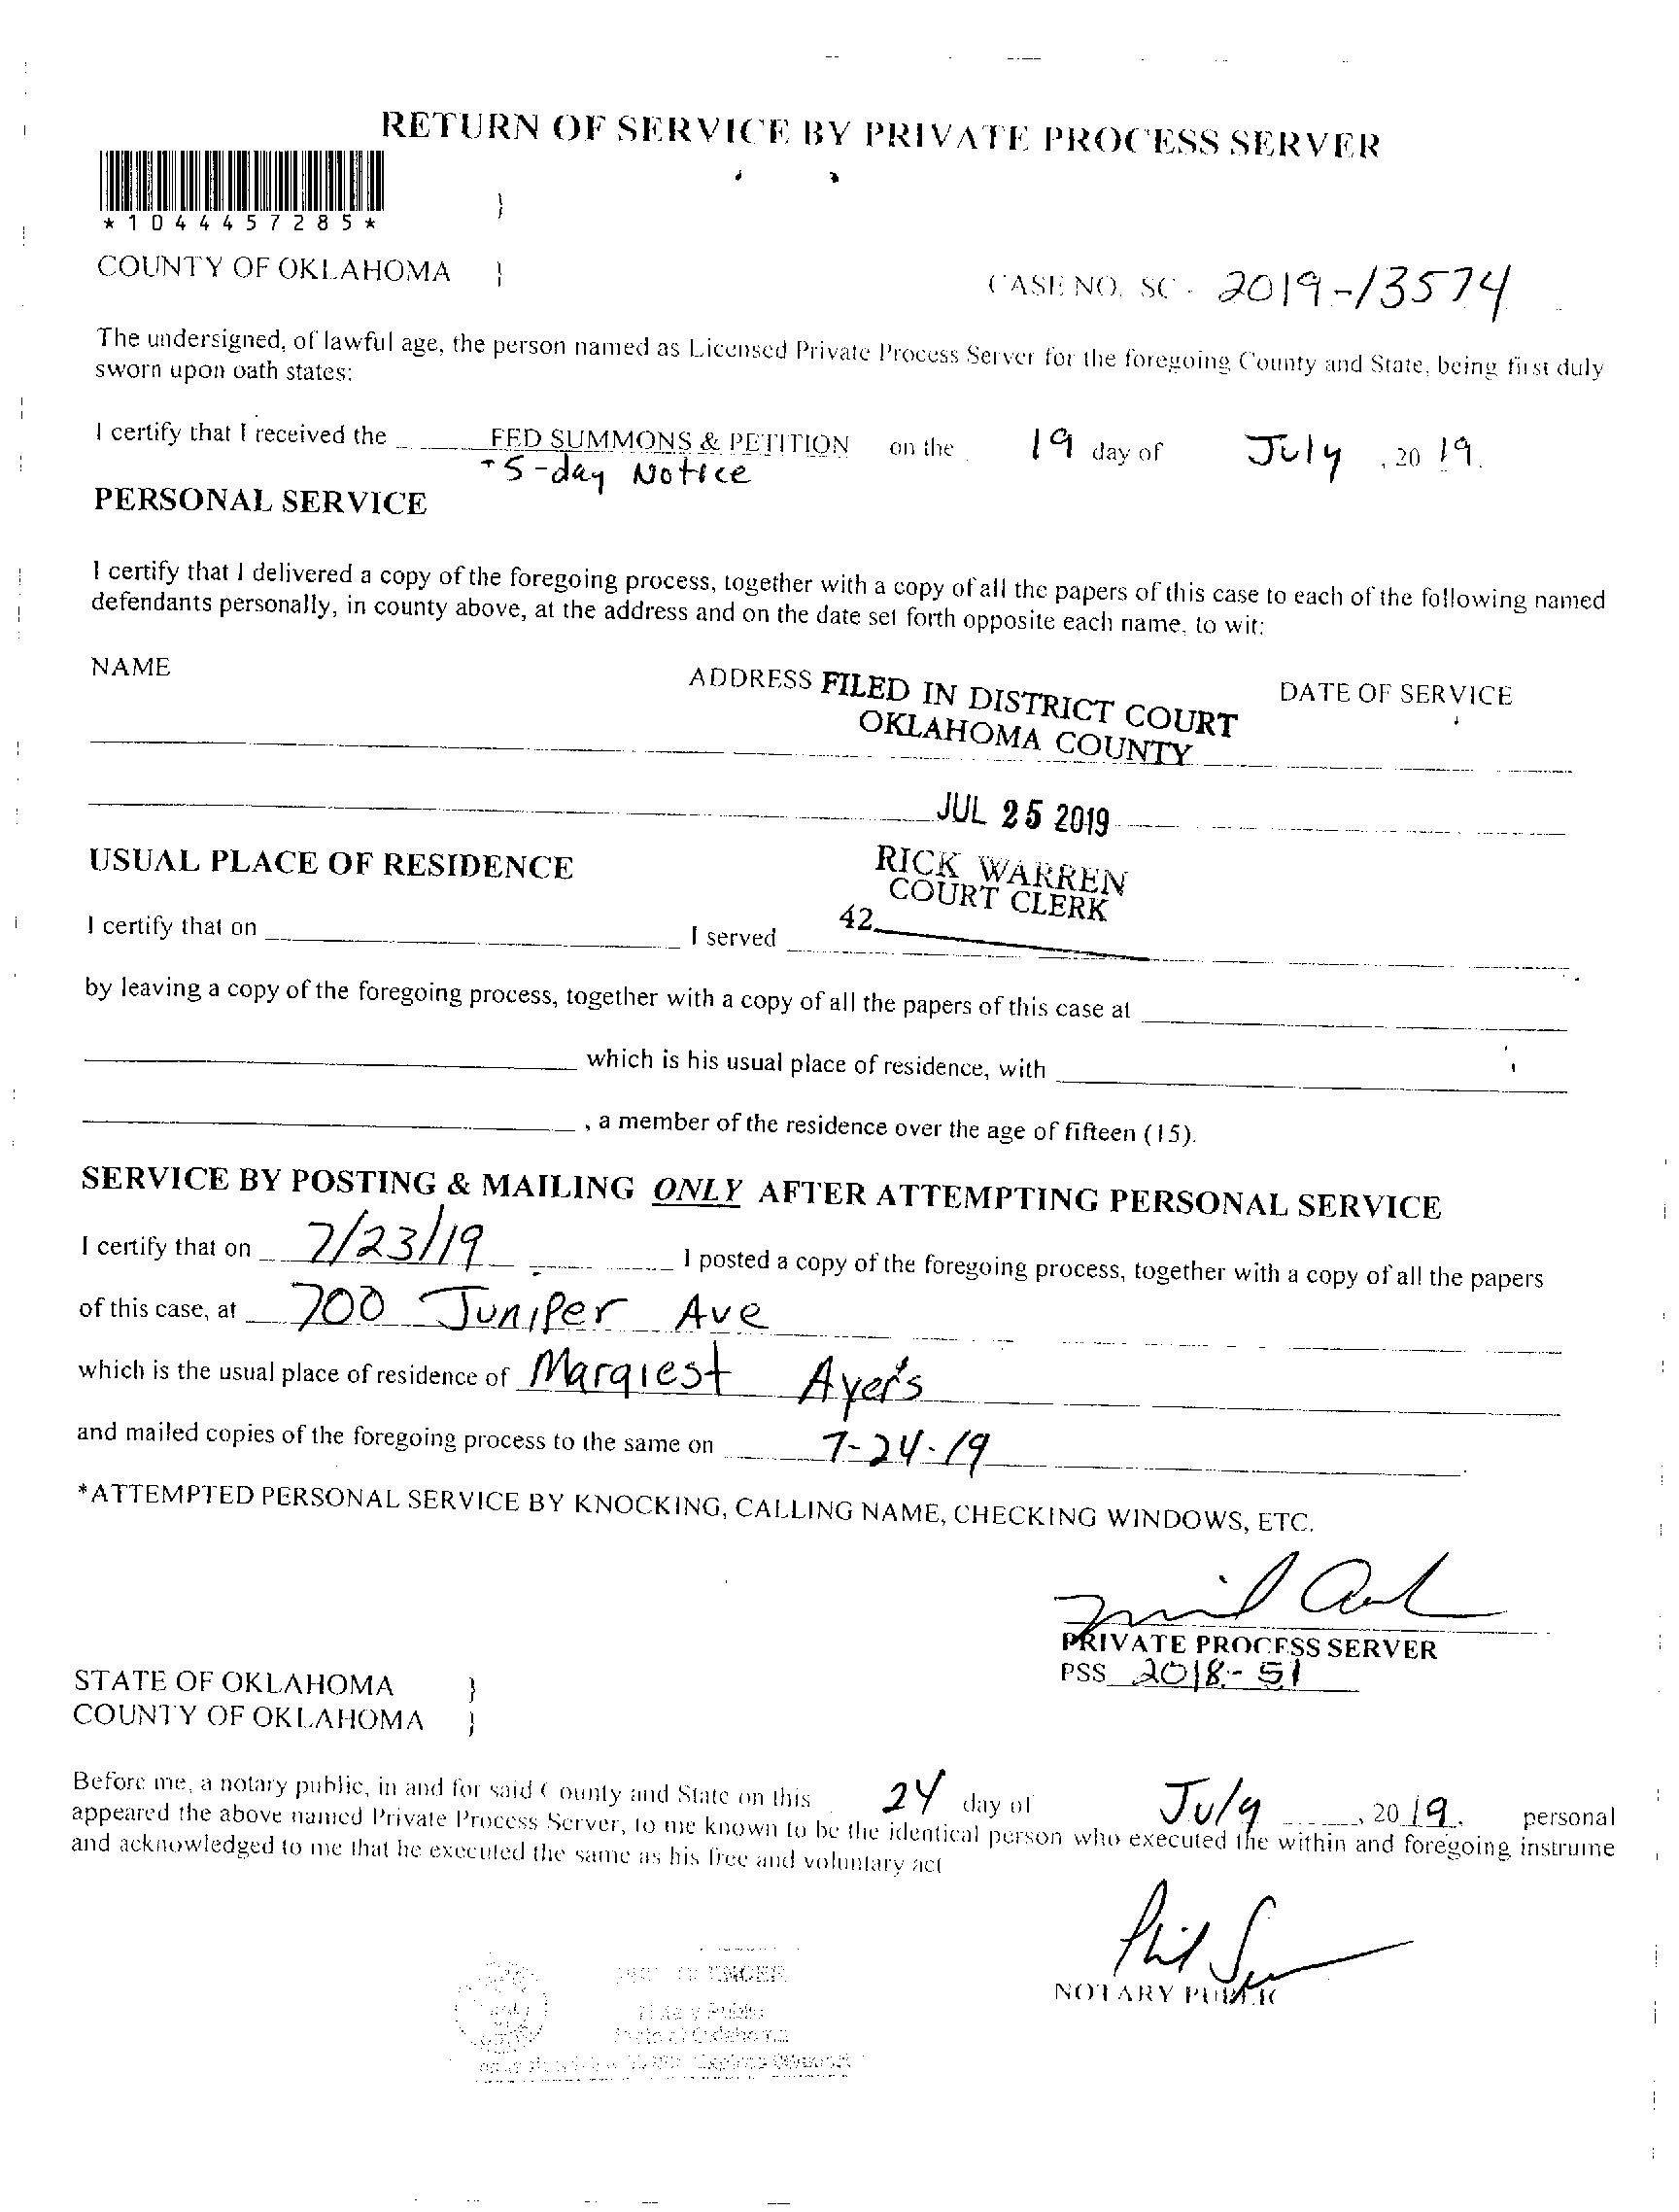 RETURN OF SERVICE BY PRIVATE PROCESS SERVER
*1044457285* }
COUNTY OF OKLAHOMA } CASE NO. SC - 2019-13574
The undersigned, of lawful age, the person named as Licensed Private Process Server for the foregoing County and State, being first duly
sworn upon oath states:
I certify that I received the FED SUMMONS & PETITION on the 19 day of July, 20 19.
+5-day Notice
PERSONAL SERVICE
I certify that I delivered a copy of the foregoing process, together with a copy of all the papers of this case to each of the following named
defendants personally, in county above, at the address and on the date set forth opposite each name, to wit:
NAME ADDRESS DATE OF SERVICE
FILED IN DISTRICT COURT
OKLAHOMA COUNTY
JUL 25 2019
RICK WARREN
COURT CLERK
42
USUAL PLACE OF RESIDENCE
I certify that on I served
by leaving a copy of the foregoing process, together with a copy of all the papers of this case at
which is his usual place of residence, with
, a member of the residence over the age of fifteen (15).
SERVICE BY POSTING & MAILING ONLY AFTER ATTEMPTING PERSONAL SERVICE
I certify that on 7/23/19 I posted a copy of the foregoing process, together with a copy of all the papers
of this case, at 700 Juniper Ave
which is the usual place of residence of Marqiest Ayers
and mailed copies of the foregoing process to the same on 7-24-19
*ATTEMPTED PERSONAL SERVICE BY KNOCKING, CALLING NAME, CHECKING WINDOWS, ETC.
PRIVATE PROCESS SERVER
PSS 2018-51
STATE OF OKLAHOMA }
COUNTY OF OKLAHOMA }
Before me, a notary public, in and for said County and State on this 24 day of July, 20 19. personal
appeared the above named Private Process Server, to me known to be the identical person who executed the within and foregoing instrume
and acknowledged to me that he executed the same as his free and voluntary act
Phil
NOTARY PUBLIC
Notary Public
State of Oklahoma